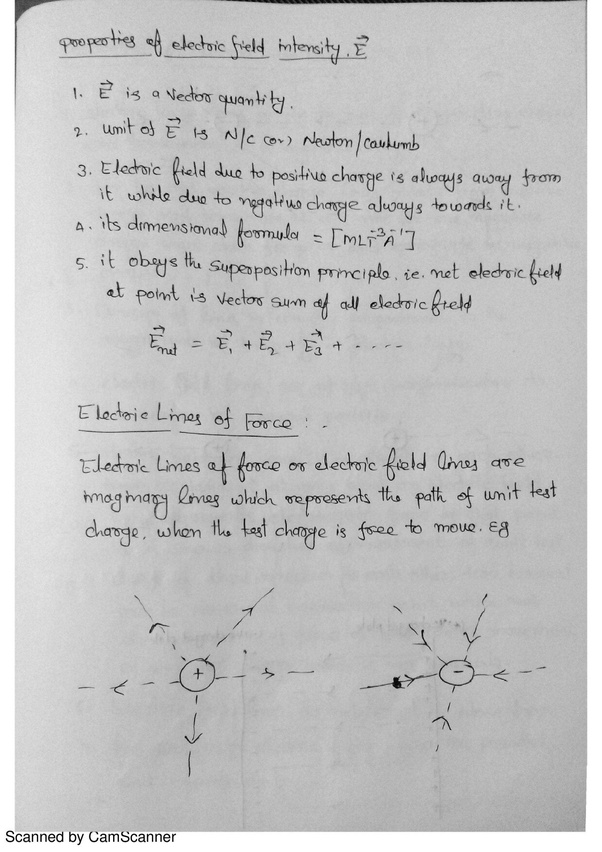 properties of electric field intensity. E⃗
1. E⃗ is a vector quantity.
2. unit of E⃗ is N/C (or) Newton/Caulumb
3. Electric field due to positive charge is always away from
it while due to negative charge always towards it.
4. its dimensional formula = [MLT⁻³A⁻¹]
5. it obeys the superposition principle, ie. net electric field
at point is vector sum of all electric field
E⃗net = E⃗₁ + E⃗₂ + E⃗₃ + .....
Electric Lines of Force : -
Electric Lines of force or electric field lines are
imaginary lines which represents the path of unit test
charge, when the test charge is free to move. Eg
+ -
Scanned by CamScanner